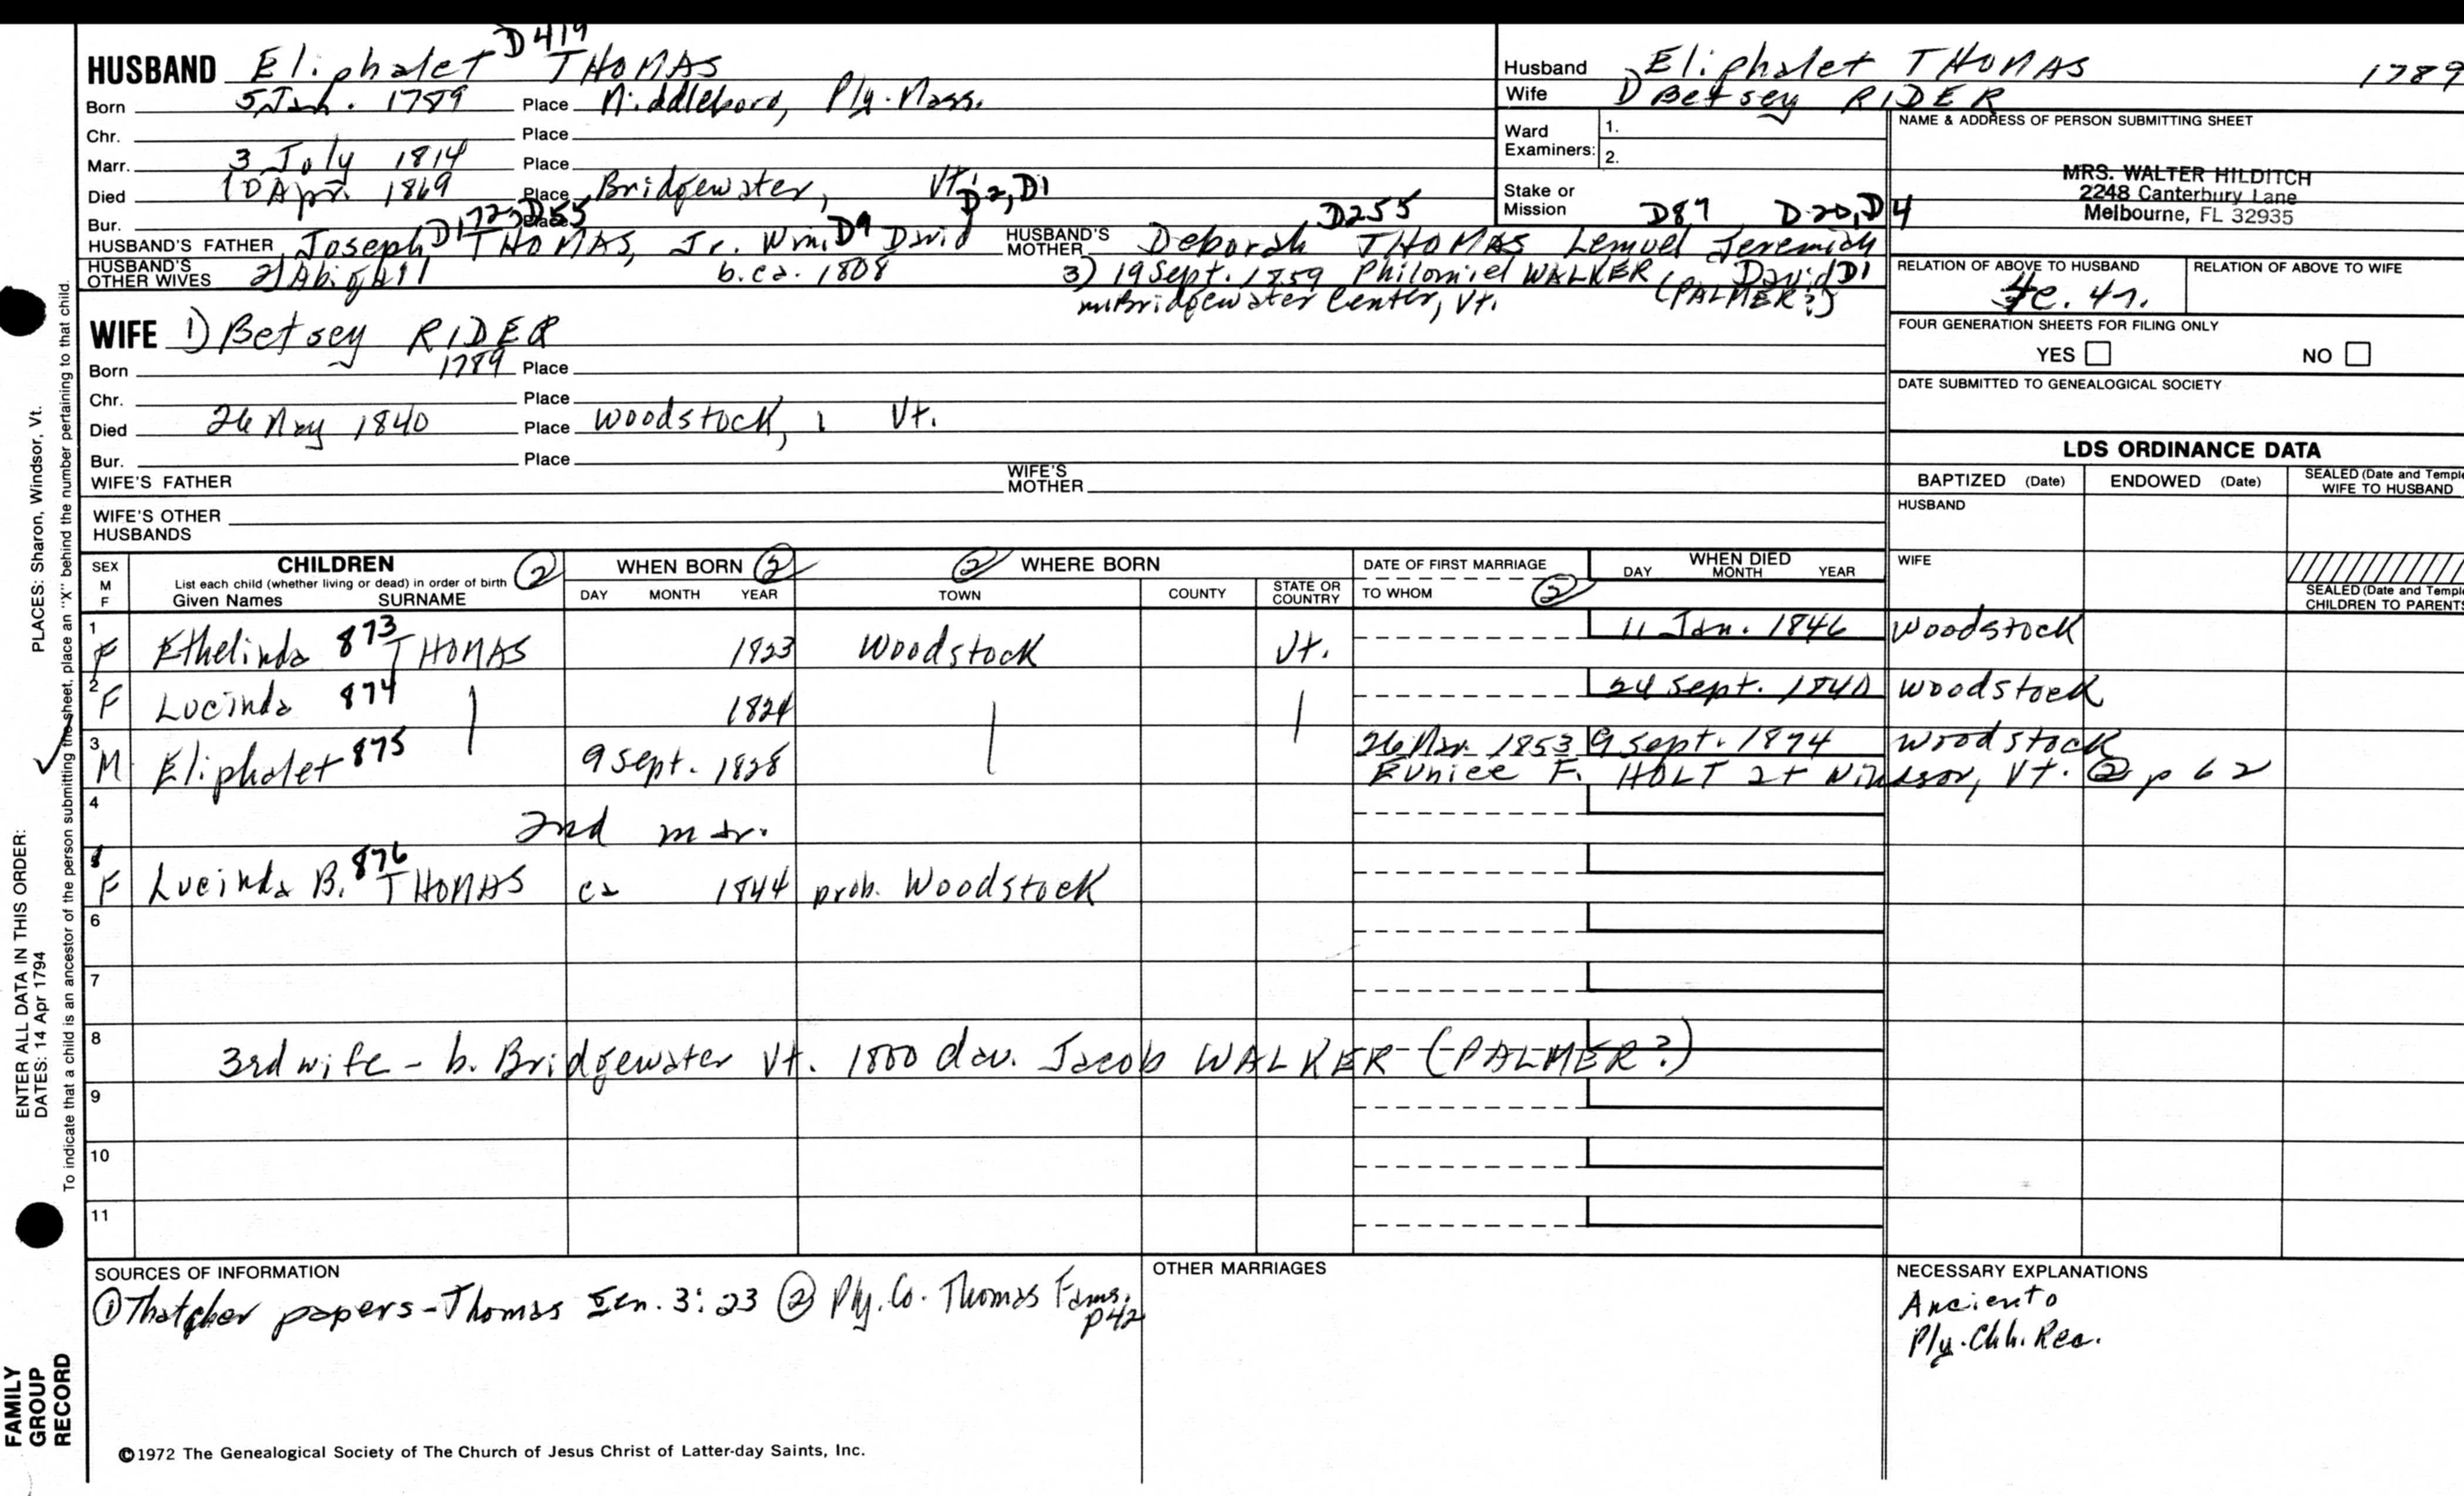 D419
HUSBAND Eliphalet THOMAS
Born 5 Jan. 1789 Place Middleboro, Ply. Mass.
Chr. Place
Marr. 3 July 1814 Place
Died 10 Apr. 1869 Place Bridgewater, Vt. D2, D1
Bur. Place D172, D55 D255 D89 D20, D4
HUSBAND'S FATHER Joseph THOMAS, Jr. Wm. D9 David HUSBAND'S MOTHER Deborah THOMAS Lemuel Jeremiah
HUSBAND'S OTHER WIVES 2) Abigail b. ca. 1808 3) 19 Sept. 1859 Philomiel WALKER David D1
m Bridgewater Center, Vt. (PALMER?)
WIFE 1) Betsey RIDER
Born 1789 Place
Chr. Place
Died 26 May 1840 Place Woodstock, Vt.
Bur. Place
WIFE'S FATHER WIFE'S MOTHER
WIFE'S OTHER HUSBANDS
Husband Eliphalet THOMAS 1789
Wife 1) Betsey RIDER
Ward Examiners: 1.
2.
Stake or Mission
NAME & ADDRESS OF PERSON SUBMITTING SHEET
MRS. WALTER HILDITCH
2248 Canterbury Lane
Melbourne, FL 32935
RELATION OF ABOVE TO HUSBAND RELATION OF ABOVE TO WIFE
4c. 4r.
FOUR GENERATION SHEETS FOR FILING ONLY
YES NO
DATE SUBMITTED TO GENEALOGICAL SOCIETY
LDS ORDINANCE DATA
BAPTIZED (Date) ENDOWED (Date) SEALED (Date and Temple
WIFE TO HUSBAND
HUSBAND
WIFE
SEALED (Date and Temple
CHILDREN TO PARENTS
SEX M F CHILDREN 2 WHEN BORN 2 2 WHERE BORN DATE OF FIRST MARRIAGE WHEN DIED
List each child (whether living or dead) in order of birth
Given Names SURNAME DAY MONTH YEAR TOWN COUNTY STATE OR COUNTRY TO WHOM 2 DAY MONTH YEAR
1 F Ethelinda 873 THOMAS 1823 Woodstock Vt. 11 Jan. 1846 Woodstock
2 F Lucinda 874 1824 24 Sept. 1840 Woodstock
3 M Eliphalet 875 9 Sept. 1828 26 Mar. 1853 9 Sept. 1874 Woodstock
Eunice F. HOLT at Windsor, Vt. 2 p 62
4 2nd mar.
F Lucinda B. 876 THOMAS ca 1844 prob. Woodstock
6
7
8 3rd wife - b. Bridgewater Vt. 1800 dau. Jacob WALKER (PALMER?)
9
10
11
SOURCES OF INFORMATION
① Thatcher papers - Thomas Gen. 3:23 ② Ply. Co. Thomas Fams. p42
OTHER MARRIAGES
NECESSARY EXPLANATIONS
Ancients
Ply. Chh. Rec.
©1972 The Genealogical Society of The Church of Jesus Christ of Latter-day Saints, Inc.
FAMILY
GROUP
RECORD
ENTER ALL DATA IN THIS ORDER:
DATES: 14 Apr 1794 PLACES: Sharon, Windsor, Vt.
To indicate that a child is an ancestor of the person submitting the sheet, place an "X" behind the number pertaining to that child.